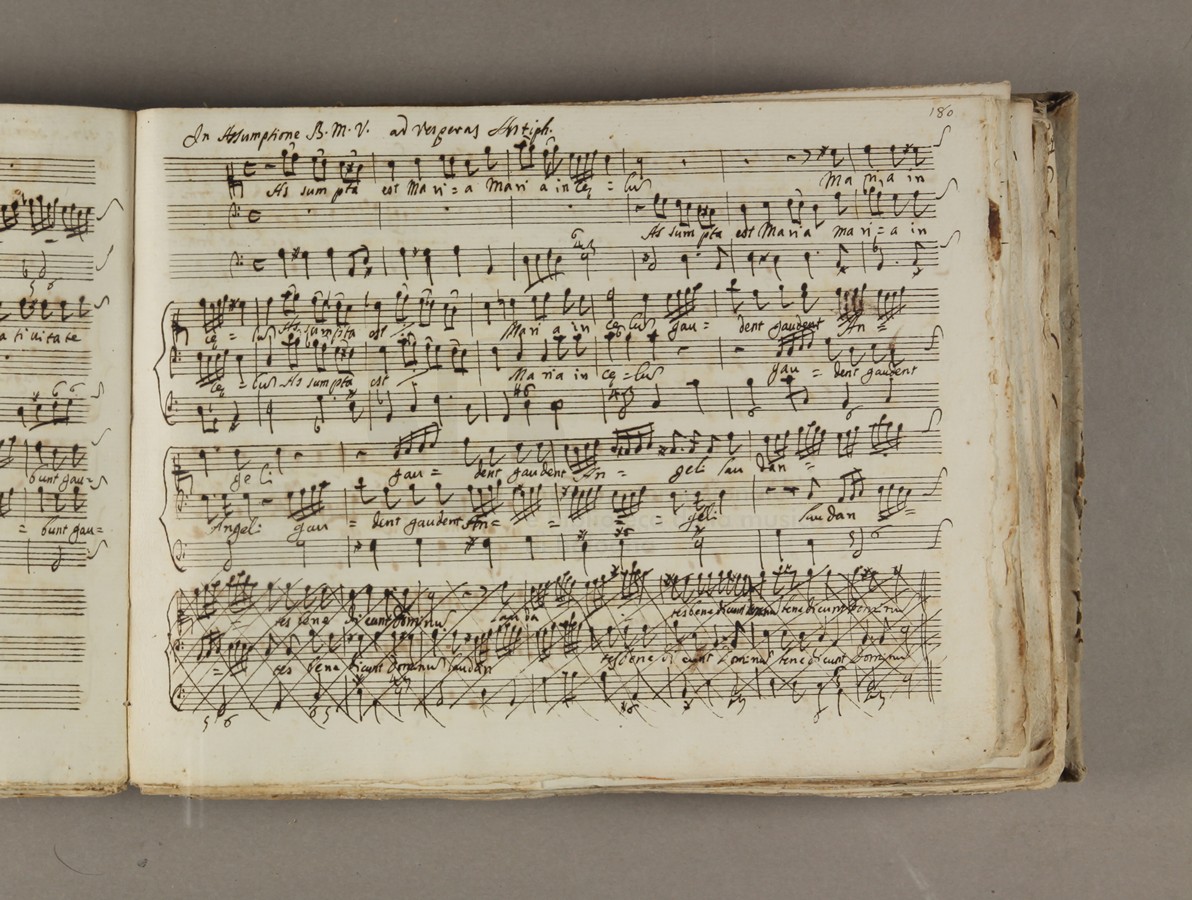 a ti vitate
bunt gau=
= bunt gau=
180
In Assumptione B. M. V. ad vesperas Antiph.
As sum pta est Ma ri = a Mari a in cę = lus Ma ri a in
As sum pta est Maria mari = a in
6
cę = lus As sumpta est ·/· Mari a in cę lus gau = dent gaudent An =
cę = lus As sum pta est Ma ria in cę = lus gau = dent gaudent
ge li gau = dent gaudent An = geli lau dan =
Angeli gau = dent gaudent An = = = geli laudan =
5 6
tes bene di cunt Dominus tes bene dicunt bene dicunt Dominus
= tes bene dicunt Dominus laudan tes bene di cunt Dominus bene dicunt Dominus
5 6 6 5